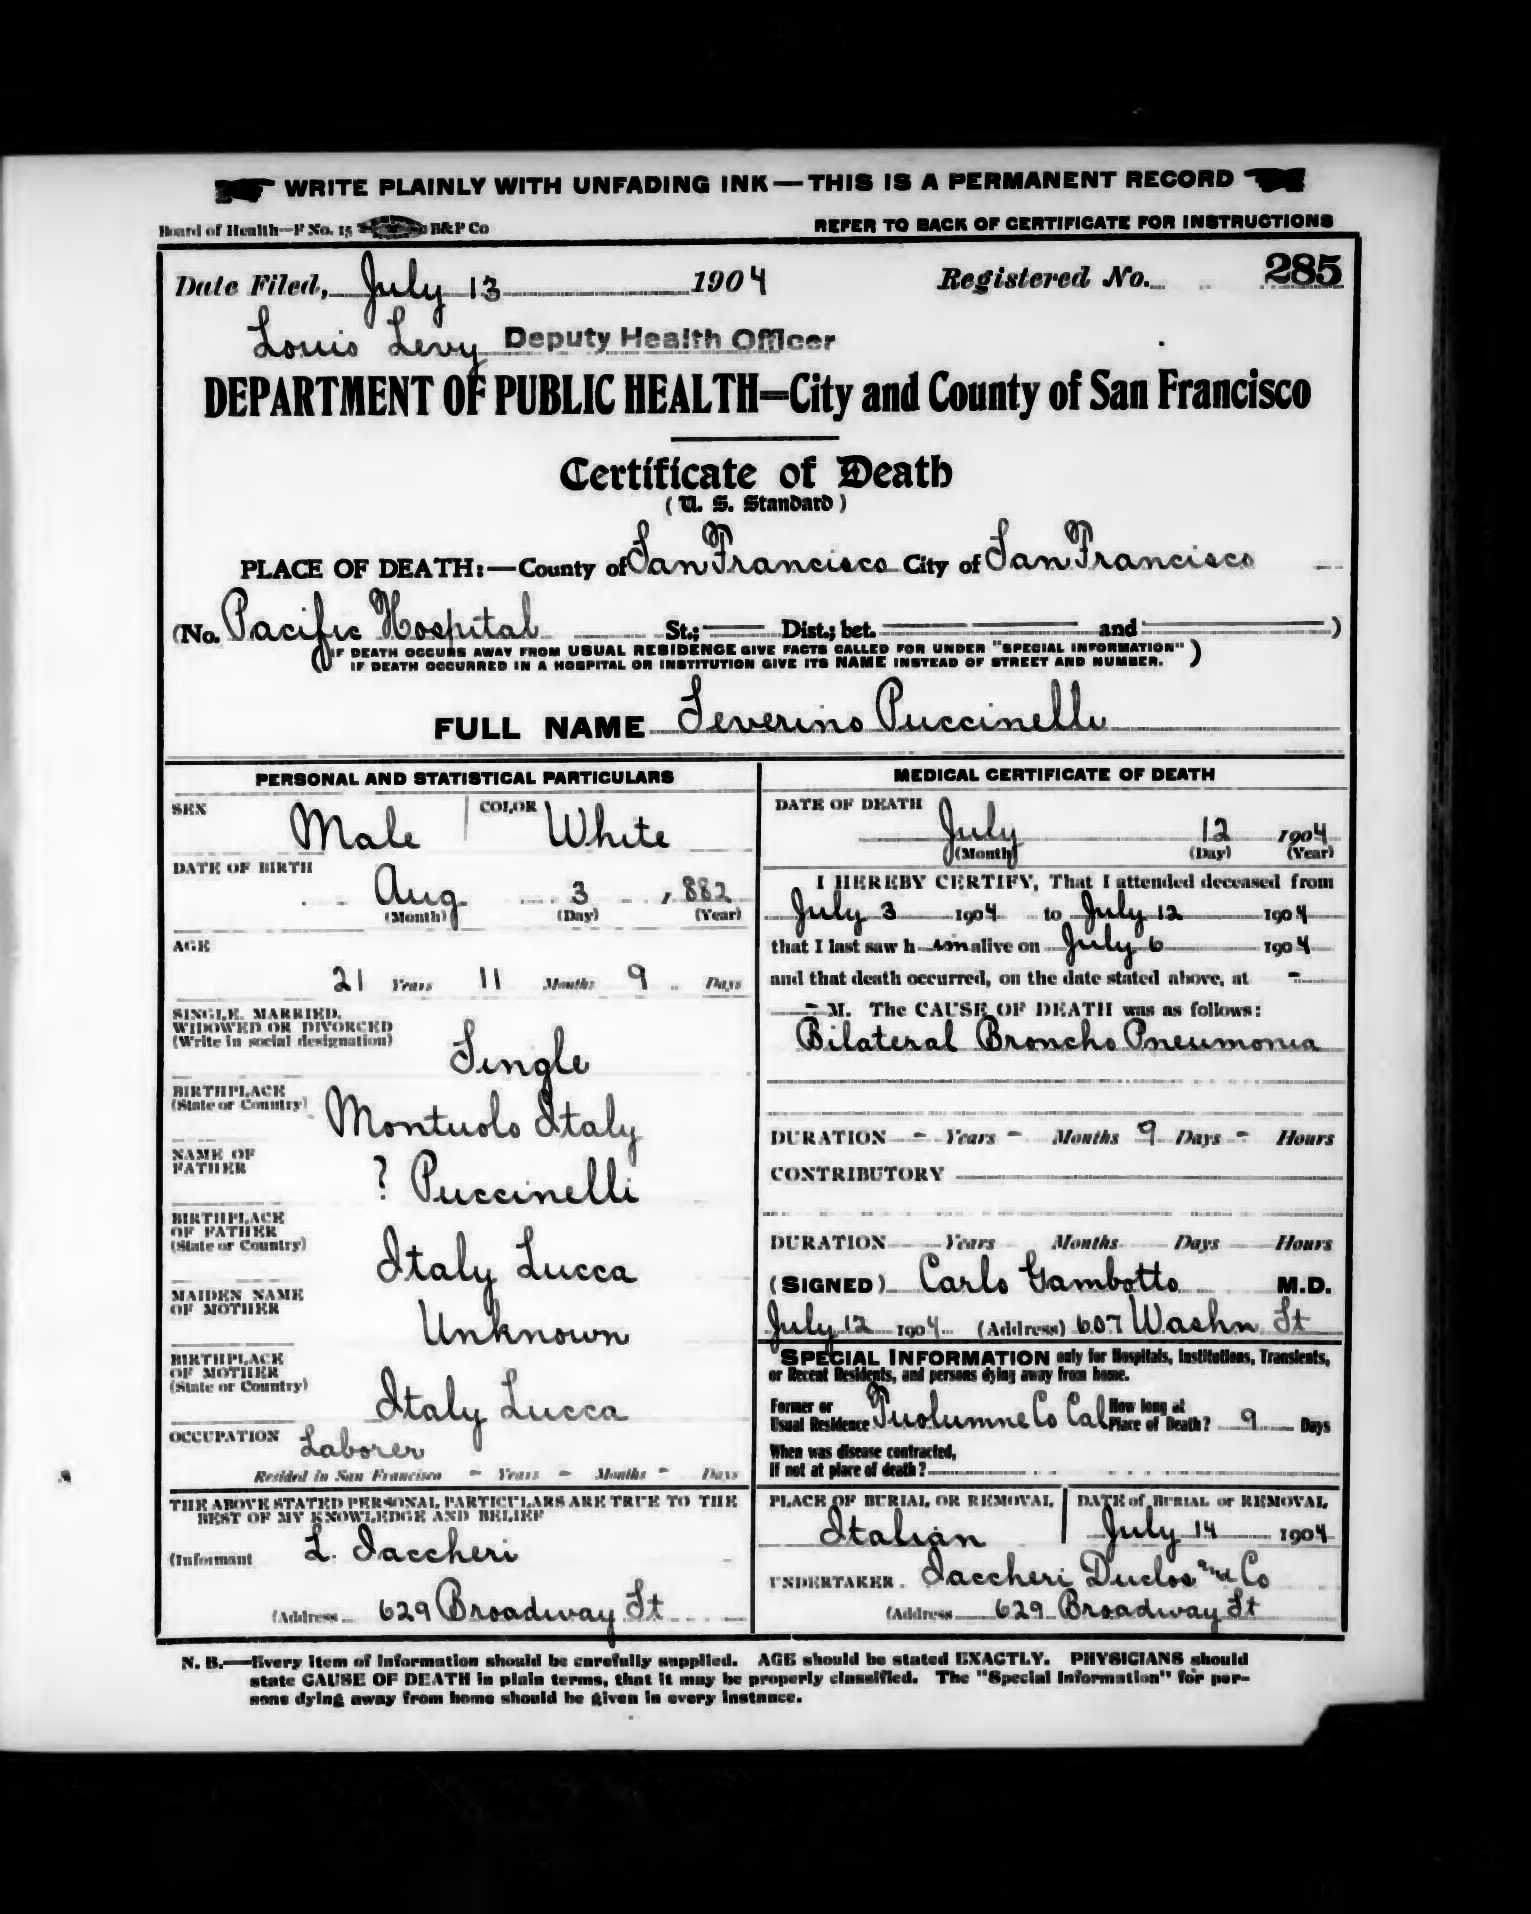 WRITE PLAINLY WITH UNFADING INK—THIS IS A PERMANENT RECORD
Board of Health—F No. 15 B&P Co REFER TO BACK OF CERTIFICATE FOR INSTRUCTIONS
Date Filed, July 13 1904 Registered No. 285
Louis Levy Deputy Health Officer
DEPARTMENT OF PUBLIC HEALTH—City and County of San Francisco
Certificate of Death
(U. S. Standard)
PLACE OF DEATH:—County of San Francisco City of San Francisco
(No. Pacific Hospital St.; Dist.; bet. and )
(IF DEATH OCCURS AWAY FROM USUAL RESIDENCE GIVE FACTS CALLED FOR UNDER "SPECIAL INFORMATION"
IF DEATH OCCURRED IN A HOSPITAL OR INSTITUTION GIVE ITS NAME INSTEAD OF STREET AND NUMBER.)
FULL NAME Severino Puccinelli
PERSONAL AND STATISTICAL PARTICULARS
SEX Male COLOR White
DATE OF BIRTH
Aug 3 , 882
(Month) (Day) (Year)
AGE
21 Years 11 Months 9 Days
SINGLE, MARRIED,
WIDOWED OR DIVORCED
(Write in social designation) Single
BIRTHPLACE
(State or Country) Montuolo Italy
NAME OF
FATHER ? Puccinelli
BIRTHPLACE
OF FATHER
(State or Country) Italy Lucca
MAIDEN NAME
OF MOTHER Unknown
BIRTHPLACE
OF MOTHER
(State or Country) Italy Lucca
OCCUPATION Laborer
Resided in San Francisco - Years - Months - Days
THE ABOVE STATED PERSONAL PARTICULARS ARE TRUE TO THE
BEST OF MY KNOWLEDGE AND BELIEF
(Informant L. Iaccheri
(Address 629 Broadway St
MEDICAL CERTIFICATE OF DEATH
DATE OF DEATH
July 12 1904
(Month) (Day) (Year)
I HEREBY CERTIFY, That I attended deceased from
July 3 1904 to July 12 1904
that I last saw h im alive on July 6 1904
and that death occurred, on the date stated above, at -
- M. The CAUSE OF DEATH was as follows:
Bilateral Broncho Pneumonia
DURATION - Years - Months 9 Days - Hours
CONTRIBUTORY
DURATION Years Months Days Hours
(SIGNED) Carlo Gambotto M.D.
July 12 1904 (Address) 607 Washn St
SPECIAL INFORMATION only for Hospitals, Institutions, Transients,
or Recent Residents, and persons dying away from home.
Former or
Usual Residence Tuolumne Co Cal How long at
Place of Death? 9 Days
When was disease contracted,
If not at place of death?
PLACE OF BURIAL OR REMOVAL
Italian
DATE of BURIAL or REMOVAL
July 14 1904
UNDERTAKER Iaccheri Duclos and Co
(Address 629 Broadway St
N. B.—Every item of information should be carefully supplied. AGE should be stated EXACTLY. PHYSICIANS should
state CAUSE OF DEATH in plain terms, that it may be properly classified. The "Special Information" for per-
sons dying away from home should be given in every instance.